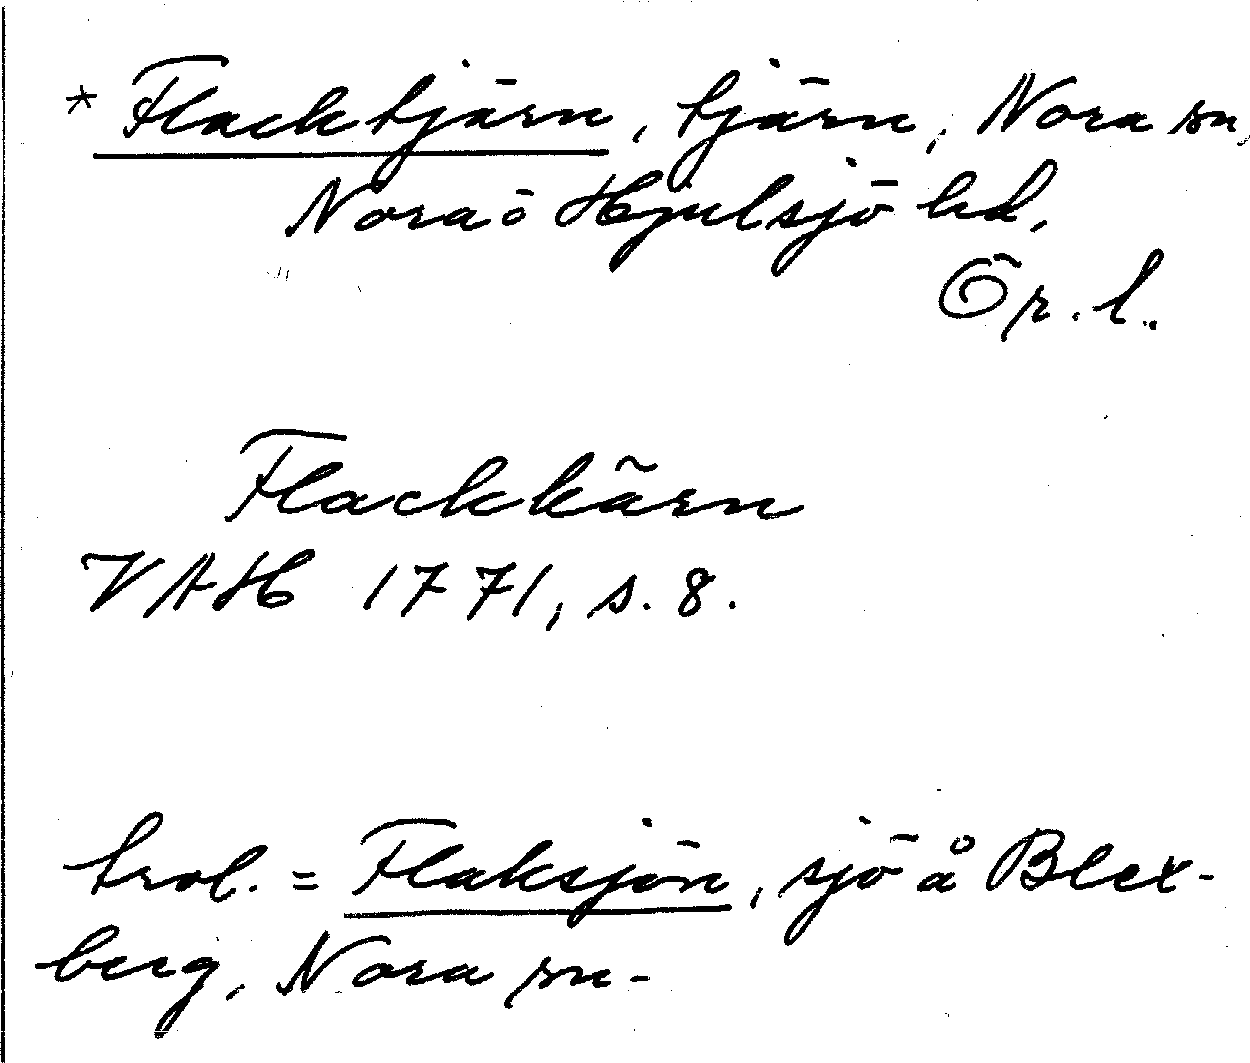 * Flacktjärn, tjärn, Nora sn,
Nora ö Hjulsjö hd,
Ör. l.
Flackkärn
VAH 1771, s. 8.
trol. = Flaksjön, sjö å Blex-
berg, Nora sn-